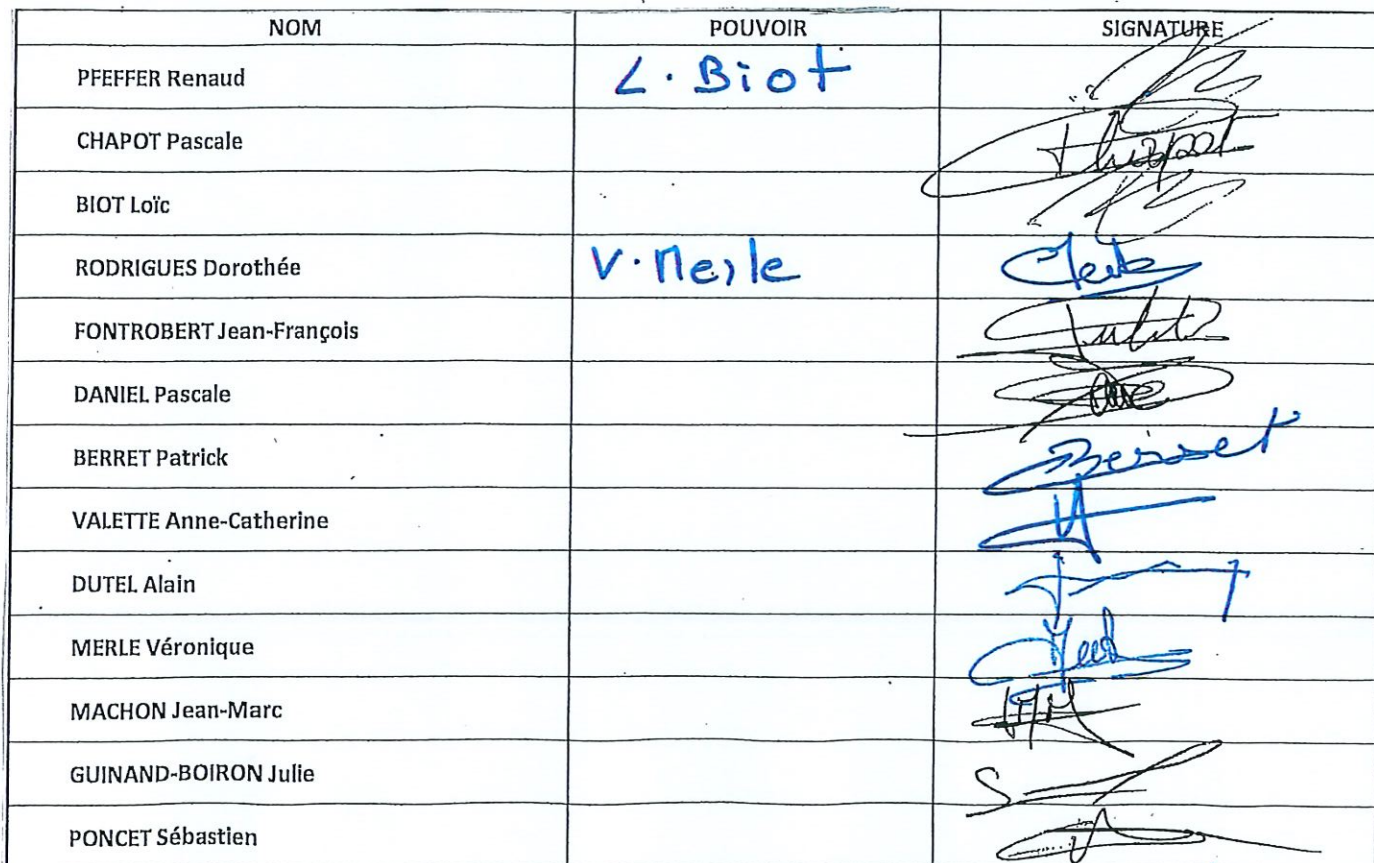 NOM POUVOIR SIGNATURE
PFEFFER Renaud L. Biot
CHAPOT Pascale Chapot
BIOT Loïc
RODRIGUES Dorothée V. Merle
FONTROBERT Jean-François
DANIEL Pascale
BERRET Patrick Berret
VALETTE Anne-Catherine
DUTEL Alain
MERLE Véronique
MACHON Jean-Marc
GUINAND-BOIRON Julie
PONCET Sébastien